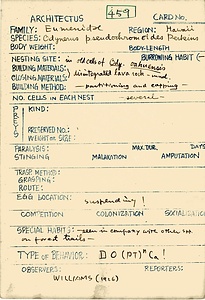 459
ARCHITECTUS CARD NO.
FAMILY: Eumenidae REGION: Hawaii
SPECIES: Odynerus pseudochromoides Perkins
BODY WEIGHT: BODY-LENGTH
NESTING SITE: in old cells of Ody. oahuensis BURROWING HABIT (-
BUILDING MATERIALS: disintegrated lava rock - mud.
BUILDING METHOD: - partitioning and capping -
NO. CELLS IN EACH NEST several -
PREYS KIND:
PRESERVED NO.:
WEIGHT OR SIZE:
PARALYSIS: MAX. DUR. DAYS
STINGING MALAXATION AMPUTATION
TRASP. METHOD:
GRASPING:
ROUTE:
EGG LOCATION: suspending!
COMPETITION COLONIZATION SOCIALIZATION
SPECIAL HABITS: - seen in company with other spp.
on forest trails -
TYPE OF BEHAVIOR: D O (PT)ⁿ Ca!
OBSERVERS: REPORTERS:
WILLIAMS (1926)